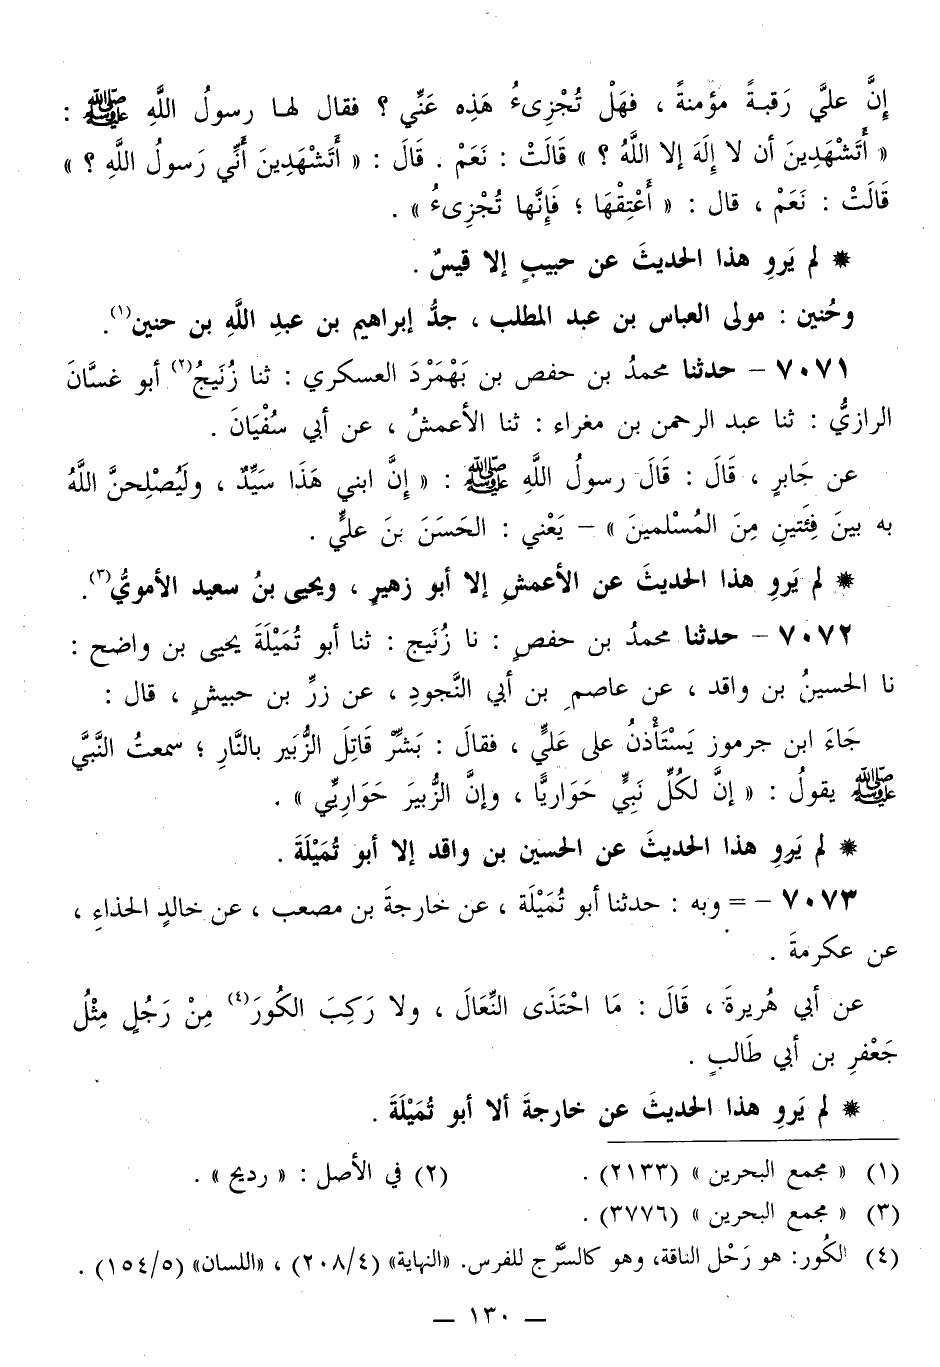 إِنَّ عليَّ رَقبةً مؤمنةً ، فهَلْ تُجْزِىءُ هَذِه عَنِّي ؟ فقال لها رسولُ اللَّهِ ﷺ :
« أَتَشْهَدِينَ أن لا إِلَهَ إلا اللَّهُ ؟ » قَالَتْ : نَعَمْ . قَالَ : « أَتَشْهَدِينَ أَنِّي رَسولُ اللَّهِ ؟ »
قَالَتْ : نَعَمْ ، قال : « أَعْتِقْهَا ؛ فَإِنَّها تُجْزِىءُ » .
* لم يَروِ هذا الحديثَ عن حبيبٍ إلا قيسٌ .
وحُنين : مولى العباس بن عبد المطلب ، جدُّ إبراهيم بن عبدِ اللَّهِ بن حنين(١).
٧٠٧١ - حدثنا محمدُ بن حفص بن بَهْمَرْدَ العسكري : ثنا زُنَيجُ(٢) أبو غسَّانَ
الرازيُّ : ثنا عبد الرحمن بن مغراء : ثنا الأعمشُ ، عن أبي سُفْيَانَ .
عن جَابرٍ ، قَالَ : قَالَ رسولُ اللَّهِ ﷺ : « إِنَّ ابني هَذَا سَيِّدٌ ، ولَيُصْلِحنَّ اللَّهُ
به بينَ فِئَتينِ مِنَ المُسْلمينَ » - يَعْني : الحَسَنَ بنَ عليٍّ .
* لم يَروِ هذا الحديثَ عن الأعمشِ إلا أبو زهيرٍ ، ويحيى بنُ سعيد الأمويُّ(٣).
٧٠٧٢ - حدثنا محمدُ بن حفصٍ : نا زُنَيج : ثنا أبو تُمَيْلَةَ يحيى بن واضح :
نا الحسينُ بن واقد ، عن عاصمِ بن أبي النَّجودِ ، عن زرِّ بن حبيشٍ ، قال :
جَاءَ ابن جرموز يَسْتَأْذنُ على عَليٍّ ، فقالَ : بَشِّرْ قَاتِلَ الزُّبَير بالنَّارِ ؛ سمعتُ النَّبَّي
ﷺ يقولُ : « إنَّ لكُلِّ نَبِيٍّ حَوَاريًّا ، وإنَّ الزُّبيرَ حَوَارِيِّي » .
* لم يَروِ هذا الحديثَ عن الحسين بن واقد إلا أبو تُمَيْلَةَ .
٧٠٧٣ - = وبه : حدثنا أبو تُمَيْلَة ، عن خارجةَ بن مصعب ، عن خالدٍ الحذاءِ ،
عن عكرمةَ .
عن أبي هُريرةَ ، قَالَ : مَا احْتَذَى النِّعَالَ ، ولا رَكِبَ الكُورَ(٤) مِنْ رَجُلٍ مِثْلُ
جَعْفرِ بن أبي طَالبٍ .
* لم يَروِ هذا الحديثَ عن خارجةَ ألا أبو تُمَيْلَةَ .
(١) « مجمع البحرين » (٢١٣٣) . (٢) في الأصل : « رديح » .
(٣) « مجمع البحرين » (٣٧٧٦) .
(٤) الكُور: هو رَحْل الناقة، وهو كالسَّرْج للفرس. «النهاية» (٢٠٨/٤) ، «اللسان» (١٥٤/٥) .
— ١٣٠ —